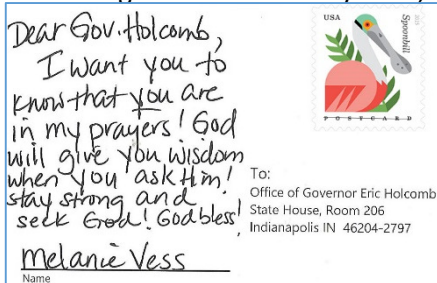 Dear Gov. Holcomb,
I want you to
know that you are
in my prayers! God
will give you wisdom
when you ask Him!
stay strong and
seek God! God bless!
Melanie Vess
Name
USA
Spoonbill
POSTCARD
To:
Office of Governor Eric Holcomb
State House, Room 206
Indianapolis IN 46204-2797